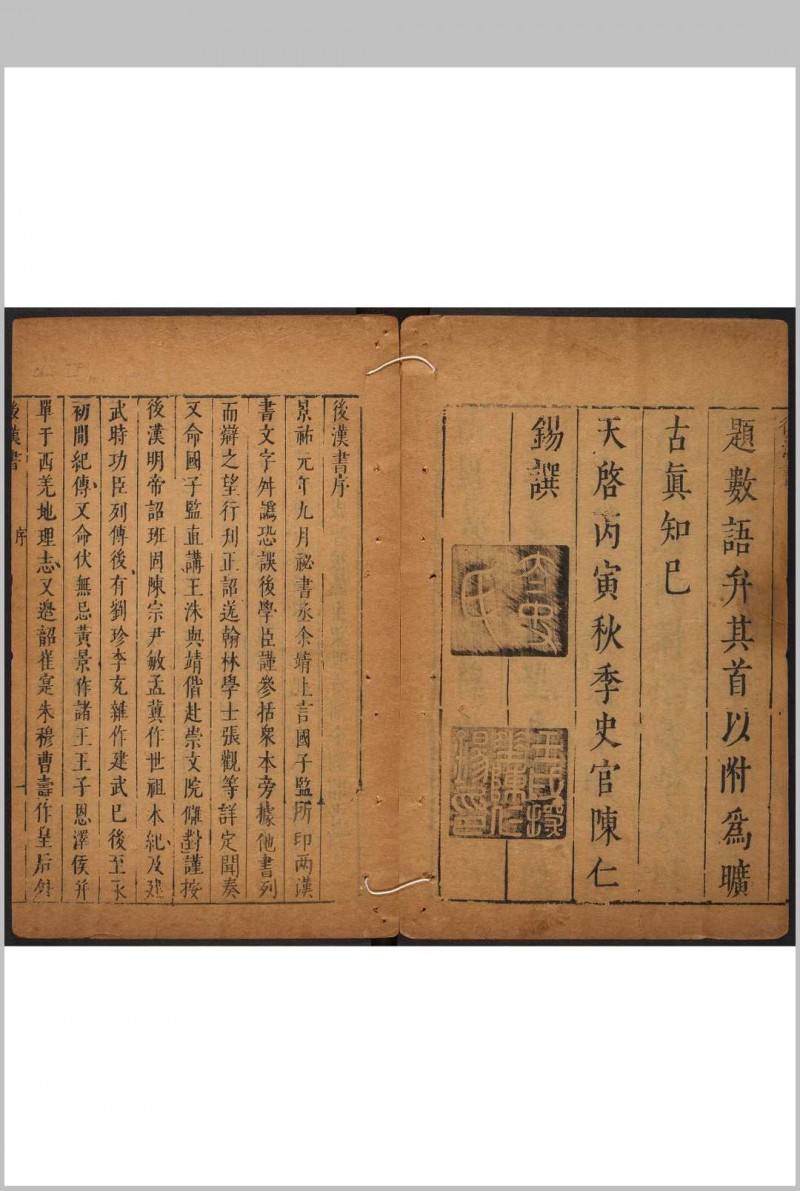 題數語弁其首以附爲曠
古眞知己
天啓丙寅秋季史官陳仁
錫譔
太史氏
後漢書序
景祐元年九月祕書丞余靖上言國子監所印两漢
書文字舛譌恐誤後學臣謹參括衆本旁據他書列
而辯之望行刋正詔送翰林學士張觀等詳定聞奏
又命國子監直講王洙與靖偕赴崇文院讎對謹按
後漢明帝詔班固陳宗尹敏孟冀作世祖本紀及建
武時功臣列傳後有劉珍李充雜作建武已後至永
初間紀傳又命伏無忌黃景作諸王王子恩澤侯并
單于西羌地理志又邊韶崔寔朱穆曹壽作皇后外
後漢書
序